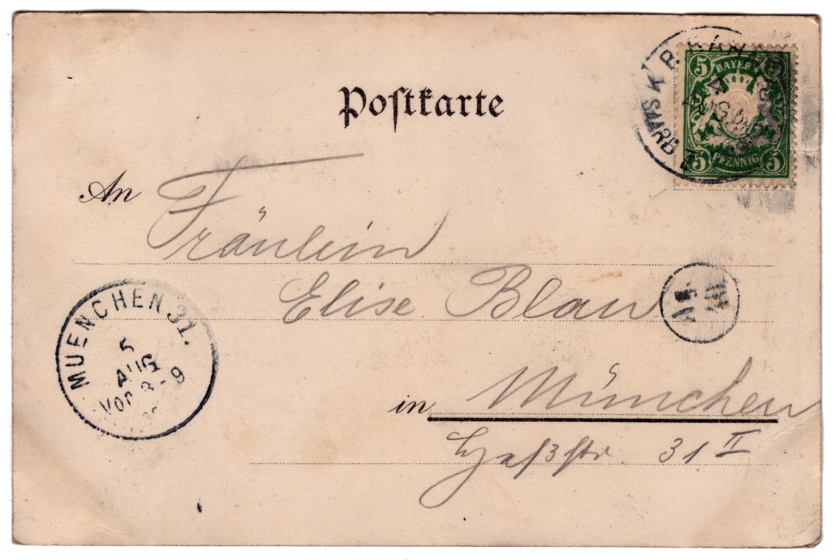 Postkarte
5 BAYERN 5
5 PFENNIG 5
SAARB
An
Fräulein
Elise Blau
MUENCHEN 31.
5
AUG
VOR 8-9
in München
31 II